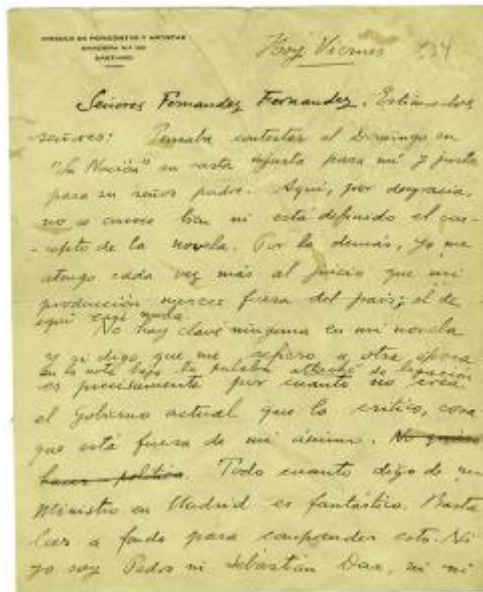 CIRCULO DE PERIODISTAS Y ARTISTAS
SANTIAGO
Hoy Viernes 934
Señores Fernandez Fernandez. Estimados
señores: Pensaba contestar el Domingo en
"La Nación" en carta injusta para mí y justa
para su señor padre. Aquí, por desgracia,
no se conoce bien ni está definido el con-
-cepto de la novela. Por lo demás, yo me
atengo cada vez más al juicio que mi
producción merece fuera del país; el de
aquí casi nada.
No hay clave ninguna en mi novela
y si digo que me refiero a otra época
en la nota bajo la palabra attaché de legación
es precisamente por cuanto no crea
el Gobierno actual que lo critico, cosa
que está fuera de mi ánimo. No quiero
hacer política. Todo cuanto digo de un
Ministro en Madrid es fantástico. Basta
leer a fondo para comprender esto. Ni
yo soy Pedro ni Sebastián Dax, ni mi